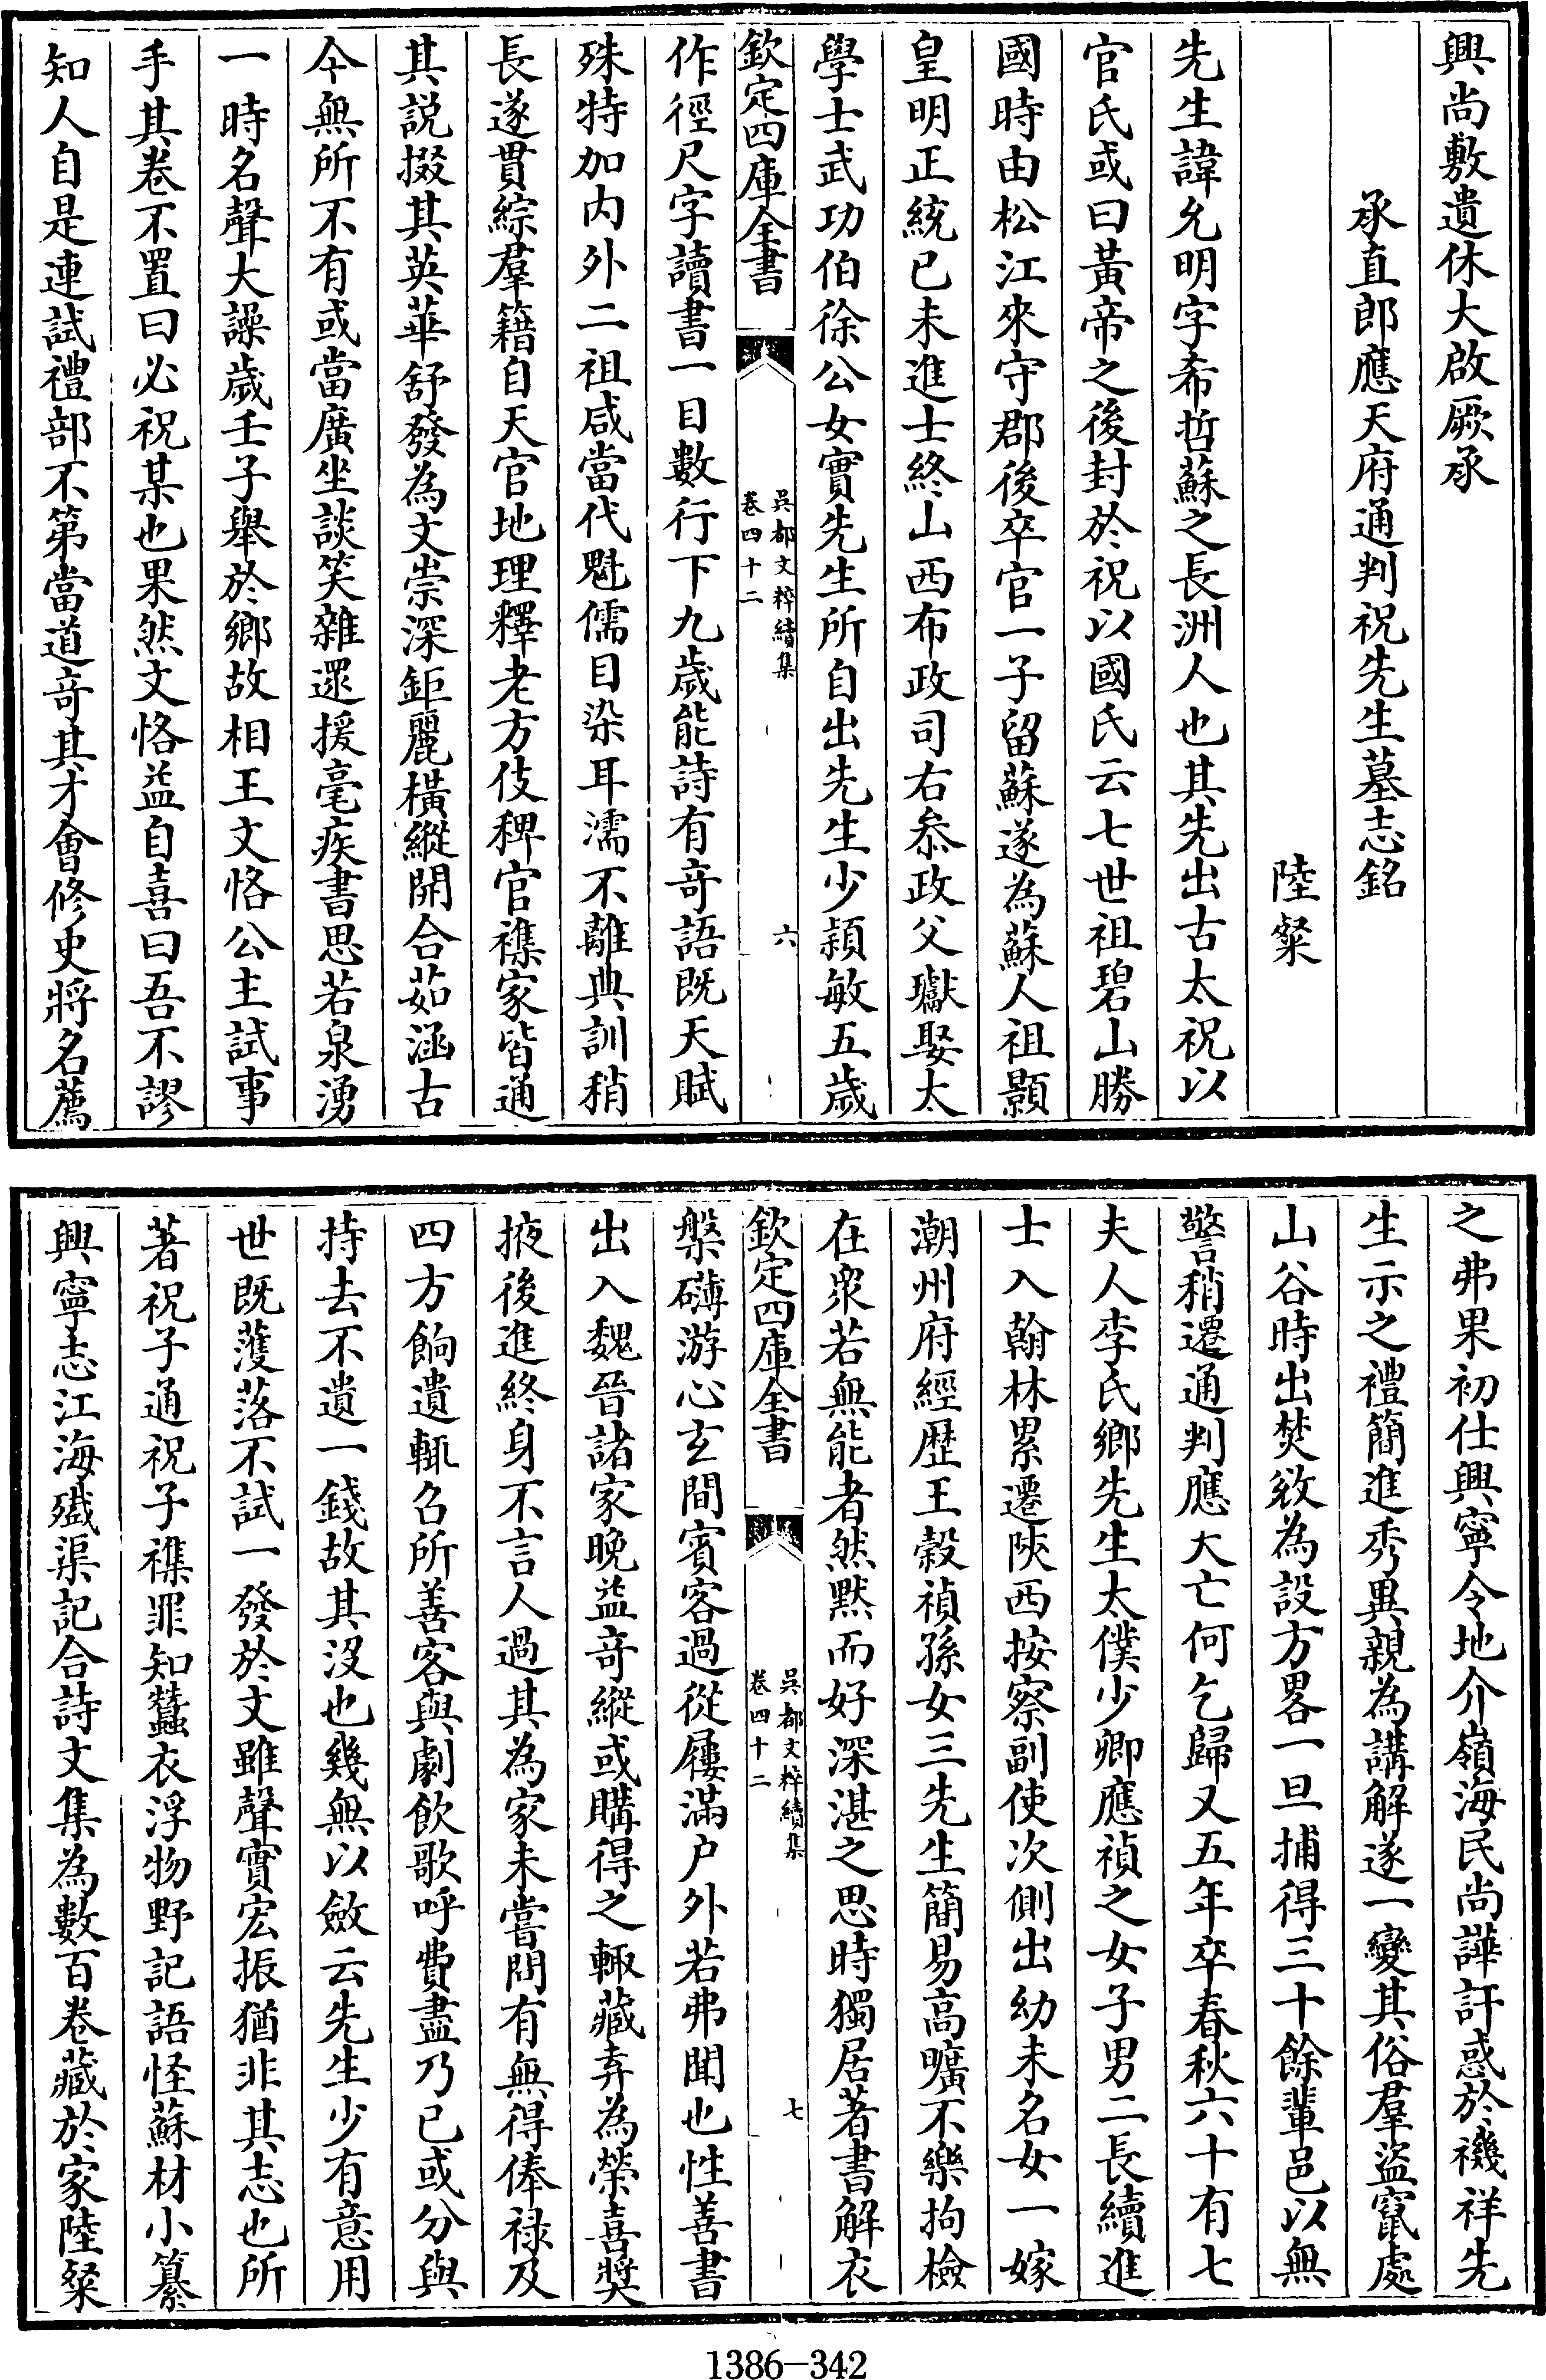 興尚敷遺休大啟厥承
承直郎應天府通判祝先生墓志銘
陸粲
先生諱允明字希哲蘇之長洲人也其先出古太祝以
官氏或曰黃帝之後封於祝以國氏云七世祖碧山勝
國時由松江來守郡後卒官一子留蘇遂為蘇人祖顥
皇明正統已未進士終山西布政司右叅政父瓛娶太
學士武功伯徐公女實先生所自出先生少穎敏五歲
欽定四庫全書
吳都文粹續集
卷四十二
六
作徑尺字讀書一目數行下九歲能詩有竒語既天賦
殊特加内外二祖咸當代魁儒目染耳濡不離典訓稍
長遂貫綜羣籍自天官地理釋老方伎稗官襍家皆通
其説掇其英華舒發為文崇深鉅麗橫縱開合茹涵古
今無所不有或當廣坐談笑雜遝援毫疾書思若泉湧
一時名聲大譟歲壬子舉於鄉故相王文恪公主試事
手其卷不置曰必祝某也果然文恪益自喜曰吾不謬
知人自是連試禮部不第當道竒其才會修史將名薦
之弗果初仕興寧令地介嶺海民尚譁訐惑於禨祥先
生示之禮簡進秀異親為講解遂一變其俗羣盜竄處
山谷時出焚敓為設方畧一旦捕得三十餘輩邑以無
警稍遷通判應天亡何乞歸又五年卒春秋六十有七
夫人李氏鄉先生太僕少卿應禎之女子男二長續進
士入翰林累遷陜西按察副使次側出幼未名女一嫁
潮州府經歴王穀禎孫女三先生簡易高曠不樂拘檢
在衆若無能者然黙而好深湛之思時獨居著書解衣
欽定四庫全書
吳都文粹續集
卷四十二
七
槃礴游心玄間賓客過從屨滿户外若弗聞也性善書
出入魏晉諸家晚益竒縱或購得之輙藏弆為榮喜奬
掖後進終身不言人過其為家未嘗問有無得俸禄及
四方餉遺輒召所善客與劇飲歌呼費盡乃已或分與
持去不遺一錢故其沒也幾無以斂云先生少有意用
世既濩落不試一發於文雖聲實宏振猶非其志也所
著祝子通祝子襍罪知蠶衣浮物野記語怪蘇材小纂
興寧志江海殱渠記合詩文集為數百卷藏於家陸粲
1386-342